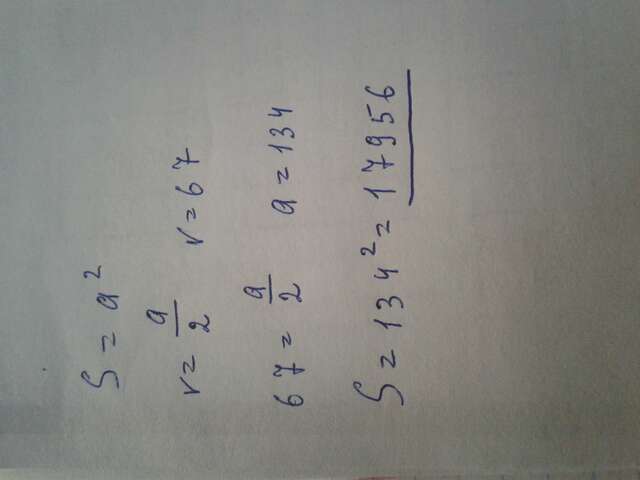 S = a²
r = a/2 r = 67
67 = a/2 a = 134
S = 134² = 17956